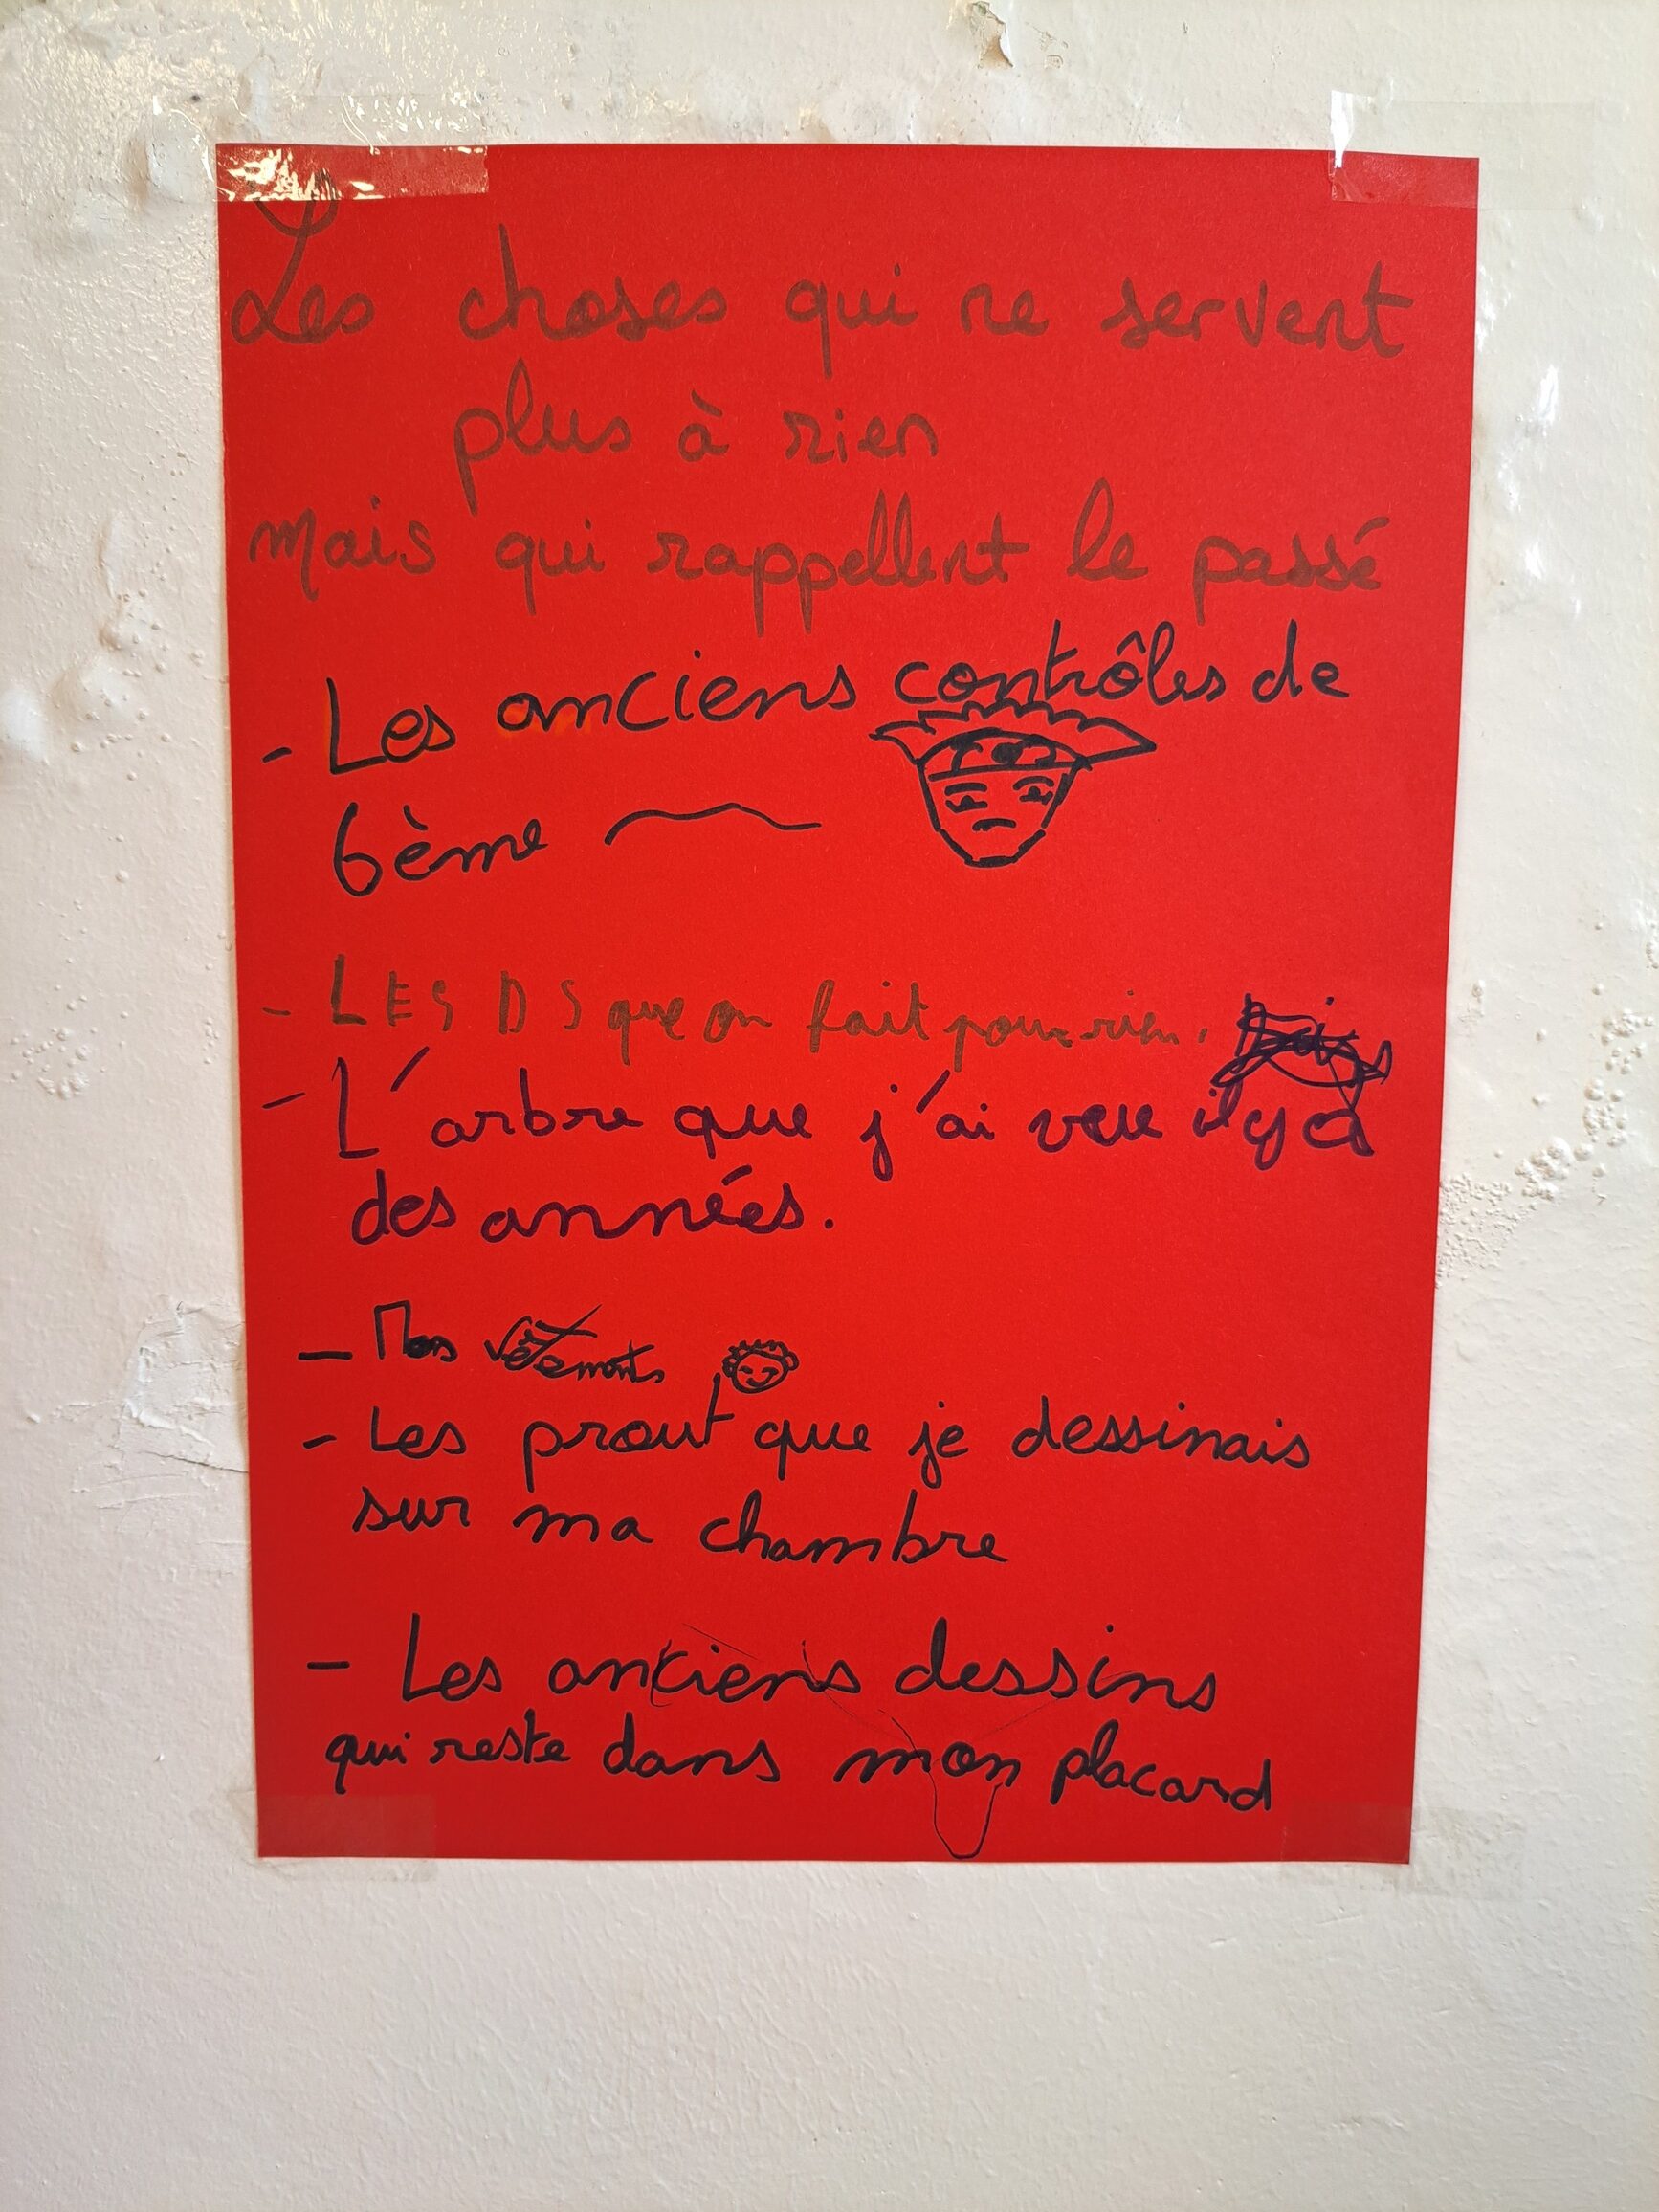 Les choses qui ne servent
plus à rien
mais qui rappellent le passé
- Les anciens contrôles de
6ème
- LES DS que on fait pour rien.
- L'arbre que j'ai vue il y a
des années.
- Mes vêtements
- Les prout que je dessinais
sur ma chambre
- Les anciens dessins
qui reste dans mon placard